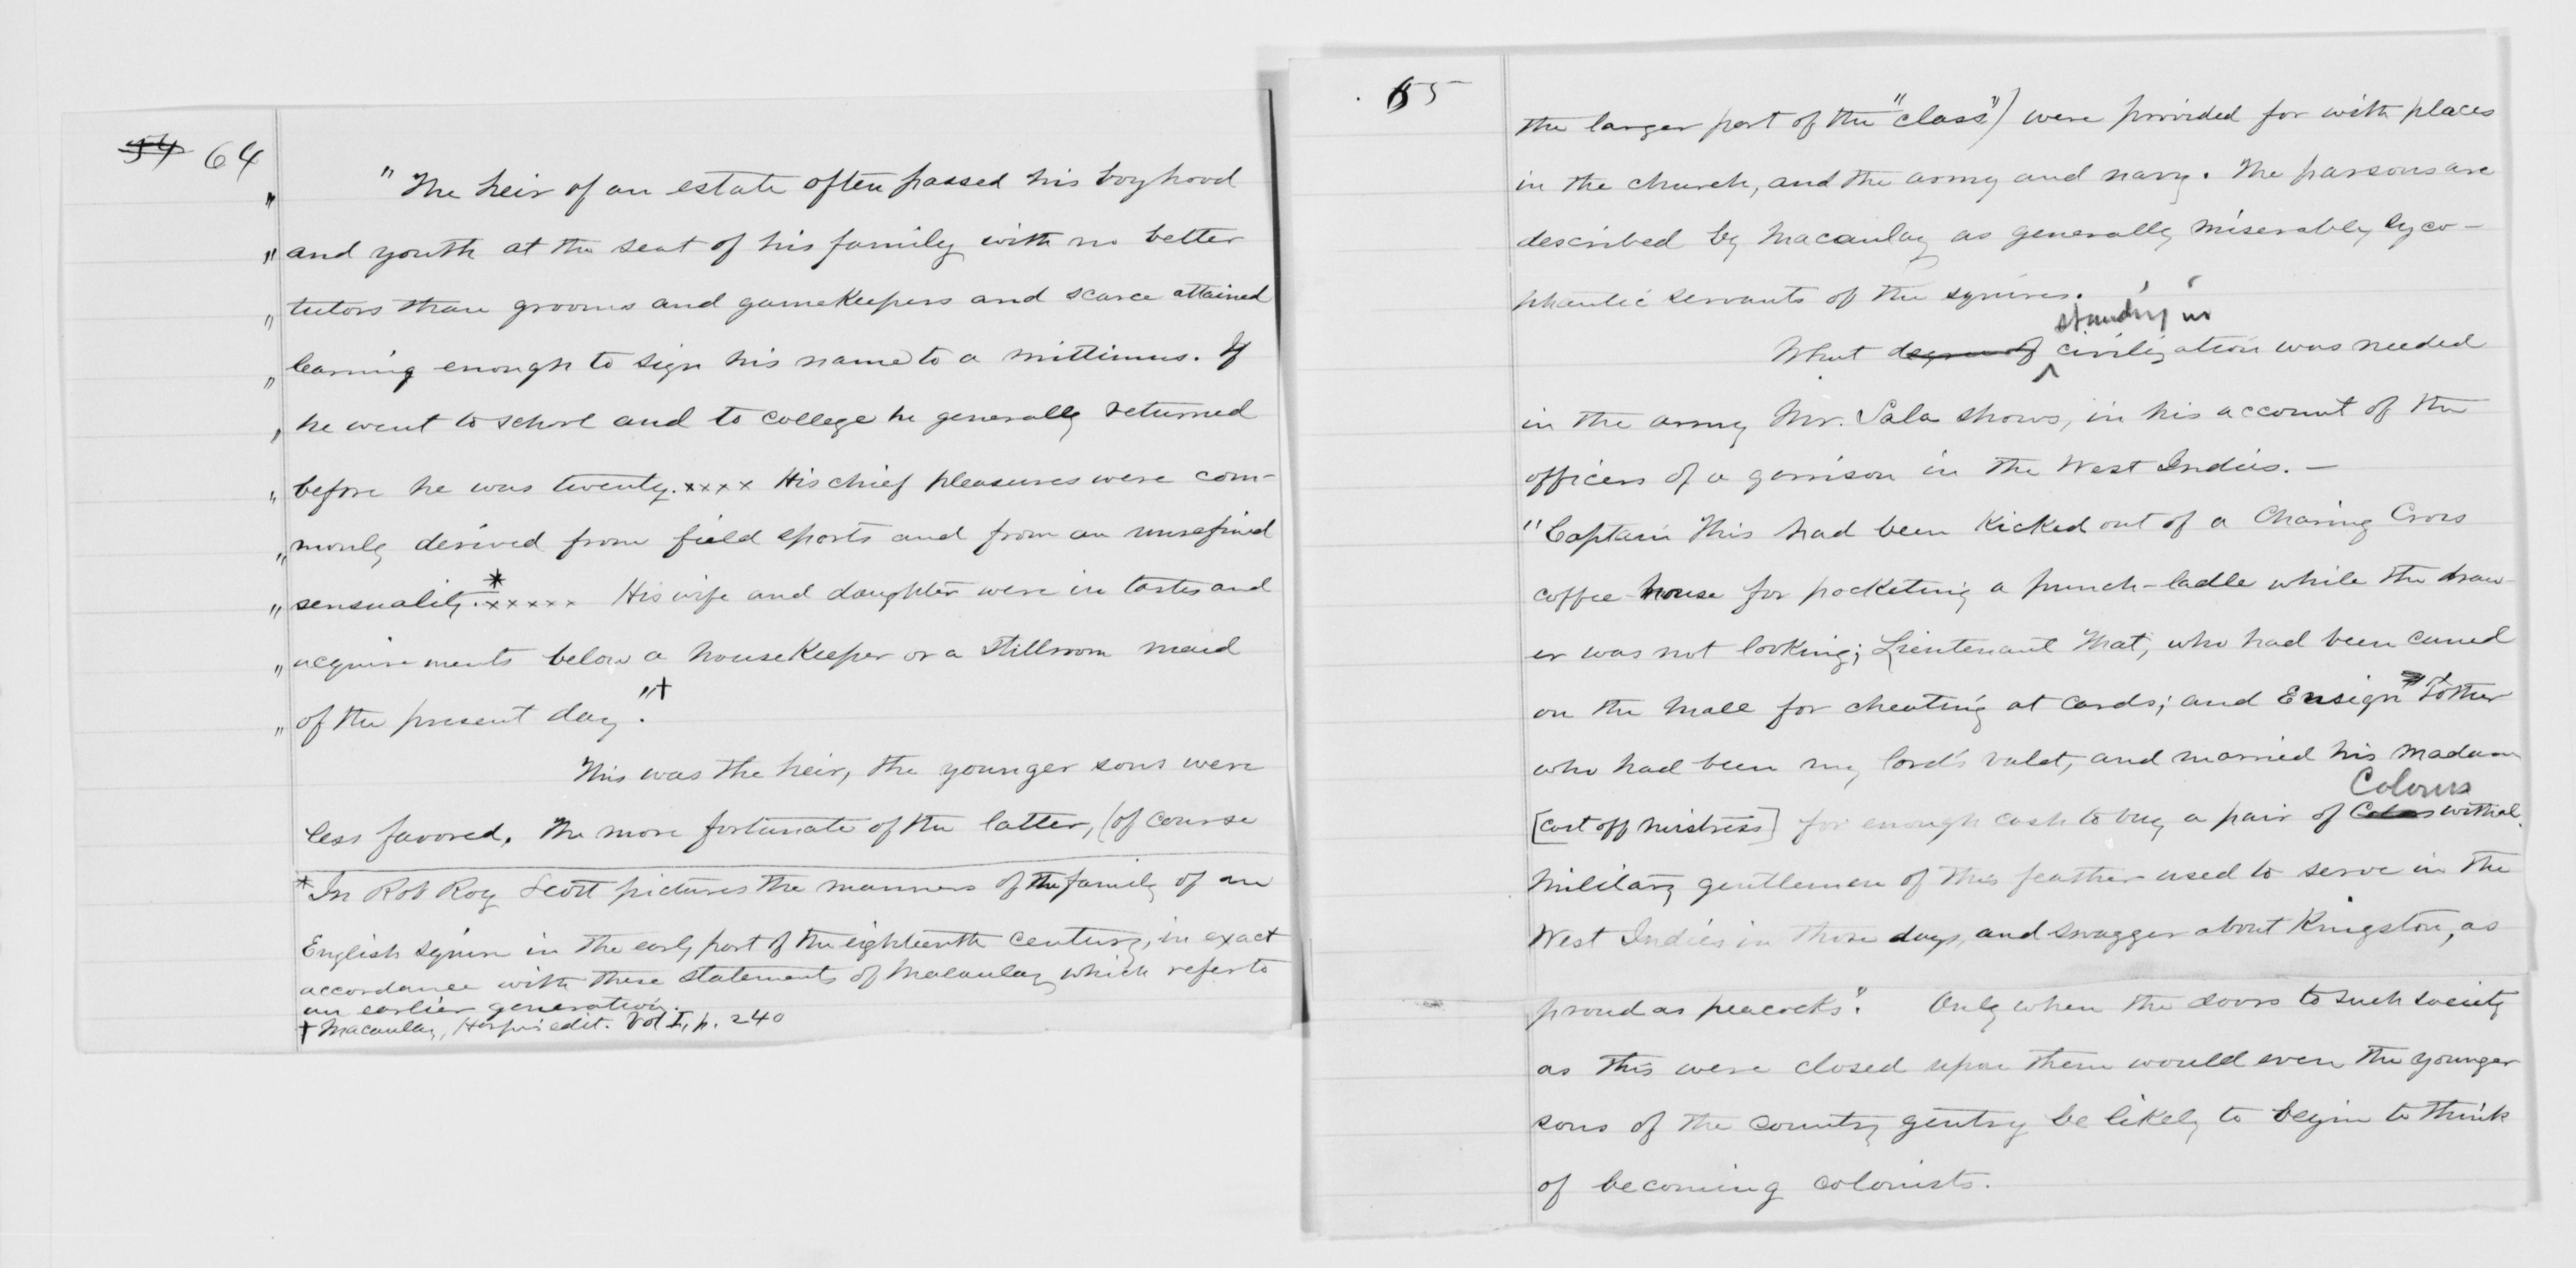 54 64
" "The heir of an estate often passed his boyhood
" and youth at the seat of his family with no better
" tutors than grooms and gamekeepers and scarce attained
" learning enough to sign his name to a mittimus. If
" he went to school and to college he generally returned
" before he was twenty. xxxx His chief pleasures were com-
" monly derived from field sports and from an unrefined
" sensuality.* xxxxx His wife and daughter were in tastes and
" acquirements below a housekeeper or a stillroom maid
" of the present day."†
This was the heir, the younger sons were
less favored. The more fortunate of the latter, (of course
* In Rob Roy Scott pictures the manners of the family of an
English squire in the early part of the eighteenth century, in exact
accordance with these statements of Macaulay which refer to
an earlier generation.
† Macaulay, Harper's edit. Vol I, p. 240
65
the larger part of the "class") were provided for with places
in the church, and the army and navy. The parsons are
described by Macaulay as generally miserably syco-
phantic servants of the squires.
standing in
What degree of civilization was needed
in the army Mr. Sala shows, in his account of the
officers of a garrison in the West Indies. —
"Captain This had been kicked out of a Charing Cross
coffee-house for pocketing a punch-ladle while the draw-
er was not looking; Lieutenant That, who had been caned
on the Mall for cheating at cards; and Ensign T'other
who had been my lord's valet, and married his Madam
Colours
[cast off mistress] for enough cash to buy a pair of Colors withal.
Military gentlemen of this feather used to serve in the
West Indies in those days, and swagger about Kingston, as
proud as peacocks". Only when the doors to such society
as this were closed upon them would even the younger
sons of the country gentry be likely to begin to think
of becoming colonists.